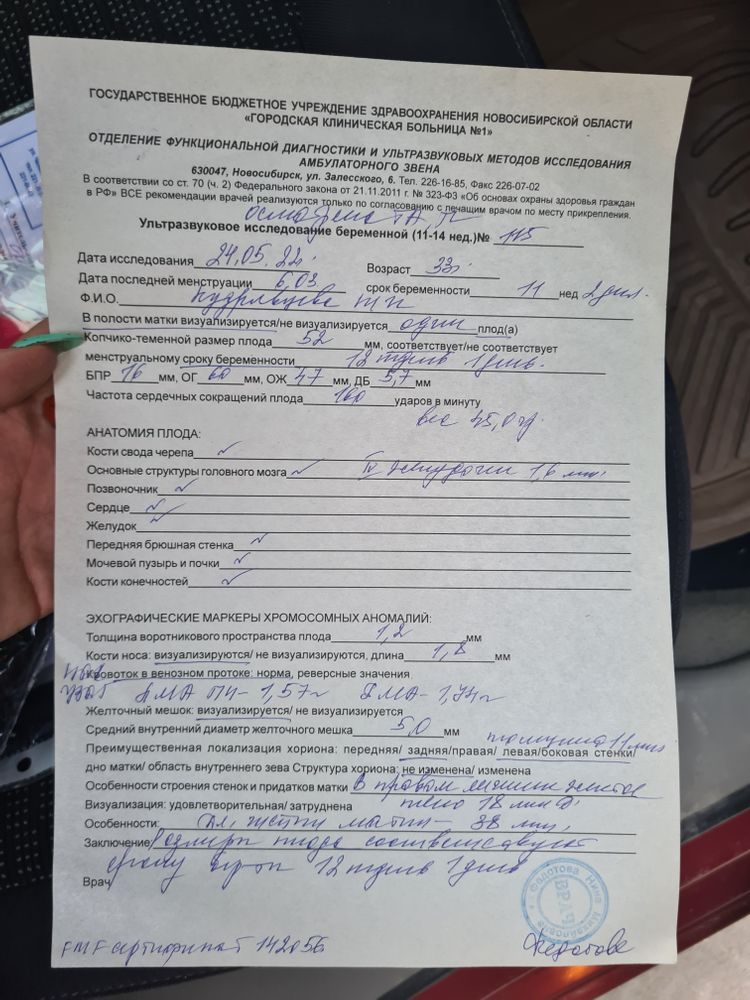 ГОСУДАРСТВЕННОЕ БЮДЖЕТНОЕ УЧРЕЖДЕНИЕ ЗДРАВООХРАНЕНИЯ НОВОСИБИРСКОЙ ОБЛАСТИ
«ГОРОДСКАЯ КЛИНИЧЕСКАЯ БОЛЬНИЦА №1»
ОТДЕЛЕНИЕ ФУНКЦИОНАЛЬНОЙ ДИАГНОСТИКИ И УЛЬТРАЗВУКОВЫХ МЕТОДОВ ИССЛЕДОВАНИЯ
АМБУЛАТОРНОГО ЗВЕНА
630047, Новосибирск, ул. Залесского, 6. Тел. 226-16-85, Факс 226-07-02
В соответствии со ст. 70 (ч. 2) Федерального закона от 21.11.2011 г. № 323-ФЗ «Об основах охраны здоровья граждан
в РФ» ВСЕ рекомендации врачей реализуются только по согласованию с лечащим врачом по месту прикрепления.
осмотрена
Ультразвуковое исследование беременной (11-14 нед.)№
Дата исследования 24.05.22г. Возраст 33г
Дата последней менструации 6,03 срок беременности 11 нед 2дня.
Ф.И.О.
В полости матки визуализируется/не визуализируется один плод(а)
Копчико-теменной размер плода 52 мм, соответствует/не соответствует
менструальному сроку беременности 12 недель 1 день.
БПР 16 мм, ОГ 60 мм, ОЖ 47 мм, ДБ 5,7 мм
Частота сердечных сокращений плода 160 ударов в минуту
вес 45,0 гр.
АНАТОМИЯ ПЛОДА:
Кости свода черепа
Основные структуры головного мозга IV желудочек 1,6 мм.
Позвоночник
Сердце
Желудок
Передняя брюшная стенка
Мочевой пузырь и почки
Кости конечностей
ЭХОГРАФИЧЕСКИЕ МАРКЕРЫ ХРОМОСОМНЫХ АНОМАЛИЙ:
Толщина воротникового пространства плода 1,2 мм
Кости носа: визуализируются/ не визуализируются, длина 1,8 мм
Кровоток в венозном протоке: норма, реверсные значения
1,57 1,74
Желточный мешок: визуализируется/ не визуализируется
Средний внутренний диаметр желточного мешка 5,0 мм
толщина 11 мм
Преимущественная локализация хориона: передняя/ задняя/правая/ левая/боковая стенки/
дно матки/ область внутреннего зева Структура хориона: не изменена/ изменена
Особенности строения стенок и придатков матки в правом яичнике желтое
Визуализация: удовлетворительная/ затруднена тело 18 мм
Особенности: дл. шейки матки - 38 мм.
Заключение: Размеры плода соответствуют
сроку 12 недель 1 день
Врач
Федотова Нина Михайловна
ВРАЧ
FMF сертификат 142056
Федотова